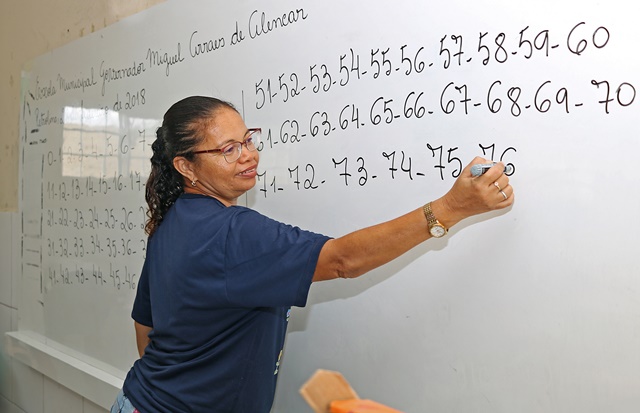 Escola Municipal Governador Miguel Arraes de Alencar
de 2018
0- 5-6-7
11-12-13-14-15-16-17-
21-22-23-24-25-26-2
31-32-33-34-35-36-3
41-42-43-44-45-46
51-52-53-54-55-56-57-58-59-60
61-62-63-64-65-66-67-68-69-70
71-72-73-74-75-76